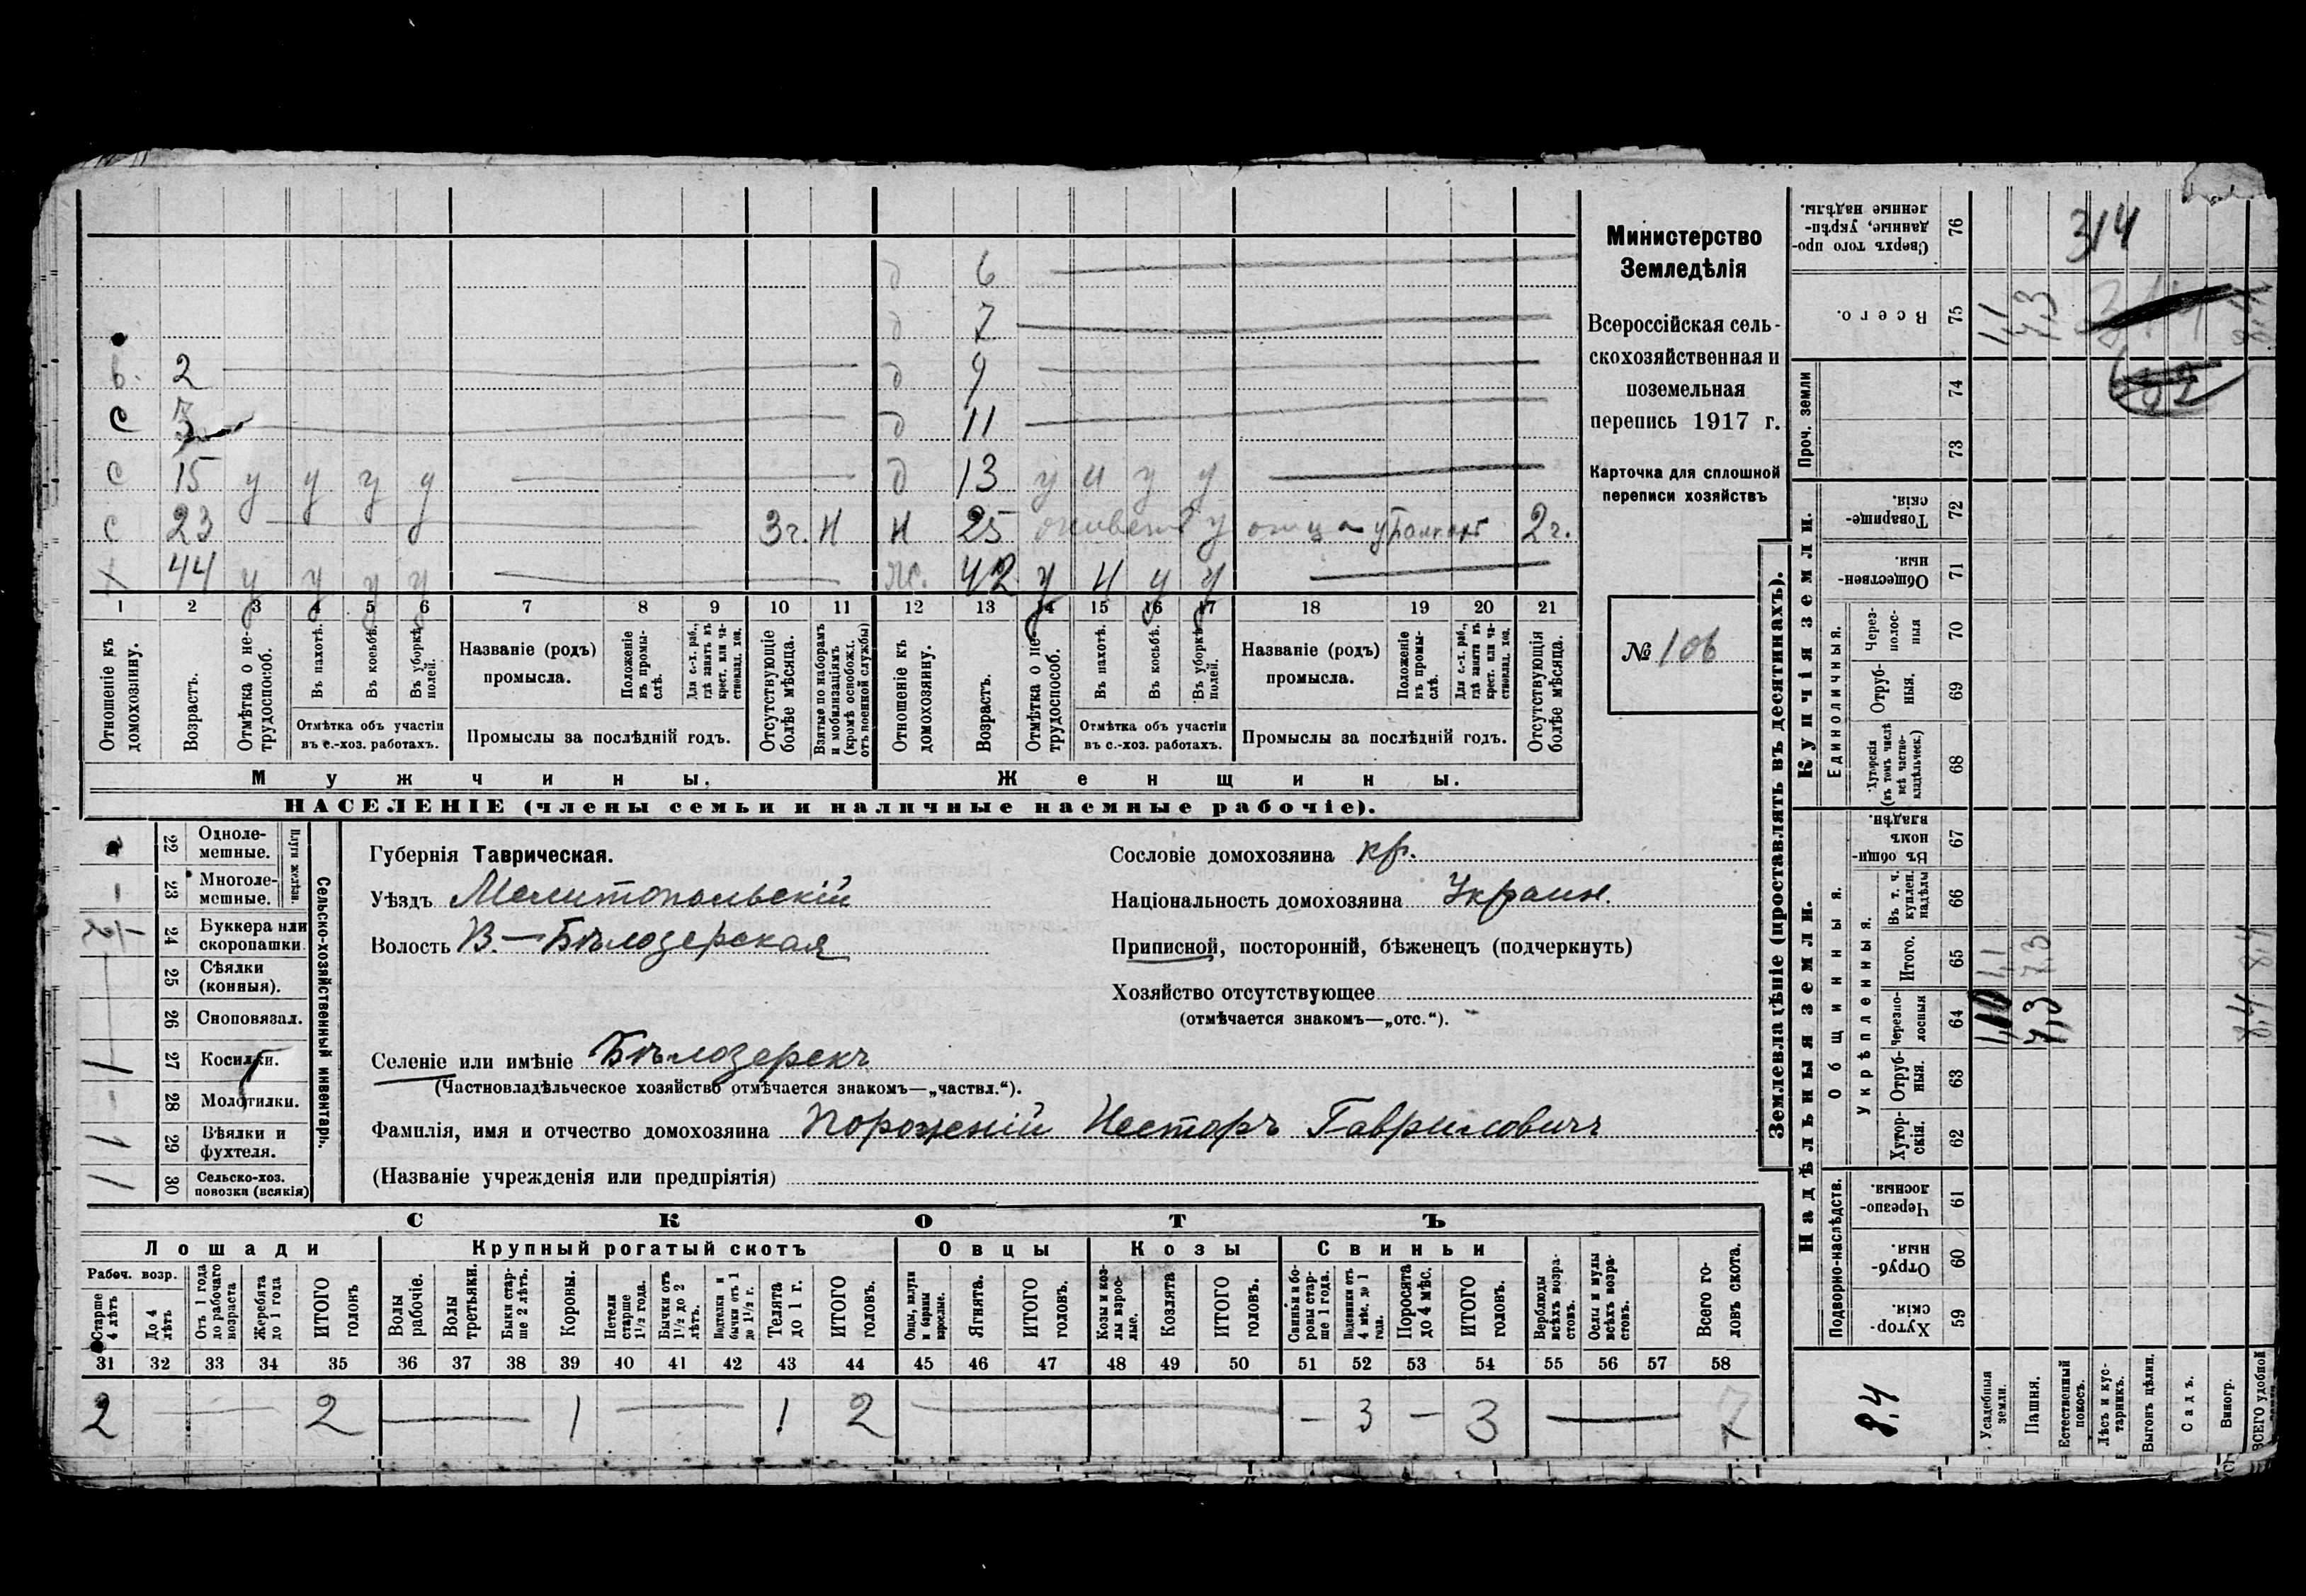 д 6
д 7
в. 2 д 9
с 3 д 11
с 15 у у у у д 13 у и у у
с 23 3 г. Н н 25 у отца 2 г.
х 44 у у у у ж. 42 у н у у
1 2 3 4 5 6 7 8 9 10 11 12 13 14 15 16 17 18 19 20 21
Отношеніе къ домохозяину.
Возрастъ.
Отмѣтка о не-трудоспособ.
Въ пахотѣ.
Въ косьбѣ.
Въ уборкѣ полей.
Отмѣтка объ участіи
въ с.-хоз. работахъ.
Названіе (родъ)
промысла.
Положеніе въ промы-слѣ.
Для с.-х. раб., гдѣ занятъ въ крест. или ча-стновлад. хоз.
Промыслы за послѣдній годъ.
Отсутствующіе болѣе мѣсяца.
Взятые по наборамъ и мобилизаціямъ (кромѣ освобожд. отъ военной службы)
Отношеніе къ домохозяину.
Возрастъ.
Отмѣтка о не-трудоспособ.
Въ пахотѣ.
Въ косьбѣ.
Въ уборкѣ полей.
Отмѣтка объ участіи
въ с.-хоз. работахъ.
Названіе (родъ)
промысла.
Положеніе въ промы-слѣ.
Для с.-х. раб., гдѣ занята въ крест. или ча-стновлад. хоз.
Промыслы за послѣдній годъ.
Отсутствующія болѣе мѣсяца.
Мужчины. Женщины.
НАСЕЛЕНІЕ (члены семьи и наличные наемные рабочіе).
Министерство
Земледѣлія
Всероссійская сель-
скохозяйственная и
поземельная
перепись 1917 г.
Карточка для сплошной
переписи хозяйствъ
№ 106
22 Одноле-мешные.
23 Многоле-мешные.
Плуги желѣзн.
24 Буккера или скоропашки.
25 Сѣялки (конныя).
26 Сноповязал.
27 Косилки.
28 Молотилки.
1 29 Вѣялки и фухтеля.
1 30 Сельско-хоз. повозки (всякія)
Сельско-хозяйственный инвентарь.
Губернія Таврическая.
Уѣздъ Мелитопольскій
Волость В.-Бѣлозерская
Сословіе домохозяина кр.
Національность домохозяина Украин.
Приписной, посторонній, бѣженецъ (подчеркнуть)
Хозяйство отсутствующее
(отмѣчается знакомъ—„отс.“).
Селеніе или имѣніе Бѣлозерскъ
(Частновладѣльческое хозяйство отмѣчается знакомъ—„частвл.“).
Фамилія, имя и отчество домохозяина Порожній Несторъ Гавриловичъ
(Названіе учрежденія или предпріятія)
СКОТЪ
Лошади Крупный рогатый скотъ Овцы Козы Свиньи
Рабоч. возр.
Старше 4 лѣтъ
До 4 лѣтъ
Отъ 1 года до рабочаго возраста
Жеребята до 1 года
ИТОГО головъ
Волы рабочіе.
Волы третьяки.
Быки стар-ше 2 лѣтъ.
Коровы.
Нетели старше 1½ года.
Бычки отъ 1½ до 2 лѣтъ.
Подтелки и бычки отъ 1 до 1½ г.
Телята до 1 г.
ИТОГО головъ.
Овцы, валухи и бараны взрослые.
Ягнята.
ИТОГО головъ.
Козы и коз-лы взрос-лые.
Козлята
ИТОГО головъ.
Свиньи и бо-ровы стар-ше 1 года.
Подсвинки отъ 4 мѣс. до 1 года.
Поросята до 4 мѣс.
ИТОГО головъ.
Верблюды всѣхъ возра-стовъ.
Ослы и мулы всѣхъ возра-стовъ.
Всего го-ловъ скота.
31 32 33 34 35 36 37 38 39 40 41 42 43 44 45 46 47 48 49 50 51 52 53 54 55 56 57 58
2 2 1 1 2 3 3 7
Землевладѣніе (проставлять въ десятинахъ).
Сверхъ того про-данные, укрѣп-ленные надѣлы. 76 3/4
Всего. 75 1,1 7,3
Проч. земли 74 73
Купчія земли.
Товарище-скія. 72
Обществен-ныя. 71
Единоличныя.
Через-полос-ныя 70
Отруб-ныя. 69
Хуторскія (въ томъ числѣ всѣ частно-владѣльческ.) 68
Надѣльныя земли.
Общинныя.
Въ общи-номъ владѣн. 67
Укрѣпленныя.
Въ т. ч. куплен. надѣлы 66
Итого. 65 1,1 7,3 8,4
Черезпо-лосныя 64 7,3 8,4
Отруб-ныя. 63
Хутор-скія. 62
Подворно-наслѣдств.
Черезпо-лосныя. 61
Отруб-ныя. 60
Хутор-скія. 59
8,4
Усадебныя земли.
Пашня.
Естественный покосъ.
Лѣсъ и кус-тарникъ.
Выгонъ цѣлин.
Садъ.
Виногр.
ВСЕГО удобной